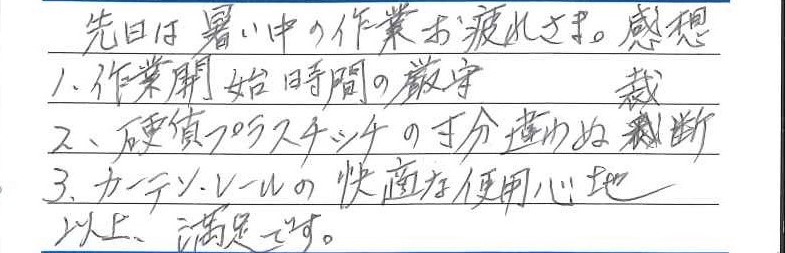 先日は暑い中の作業お疲れさま。感想
1、作業開始時間の厳守
2、硬質プラスチックの寸分違わぬ裁断
3、カーテン・レールの快適な使用心地
以上、満足です。